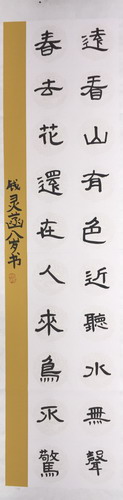 遠看山有色近聽水無聲
春去花還在人來鳥不驚
钱灵菡八岁书